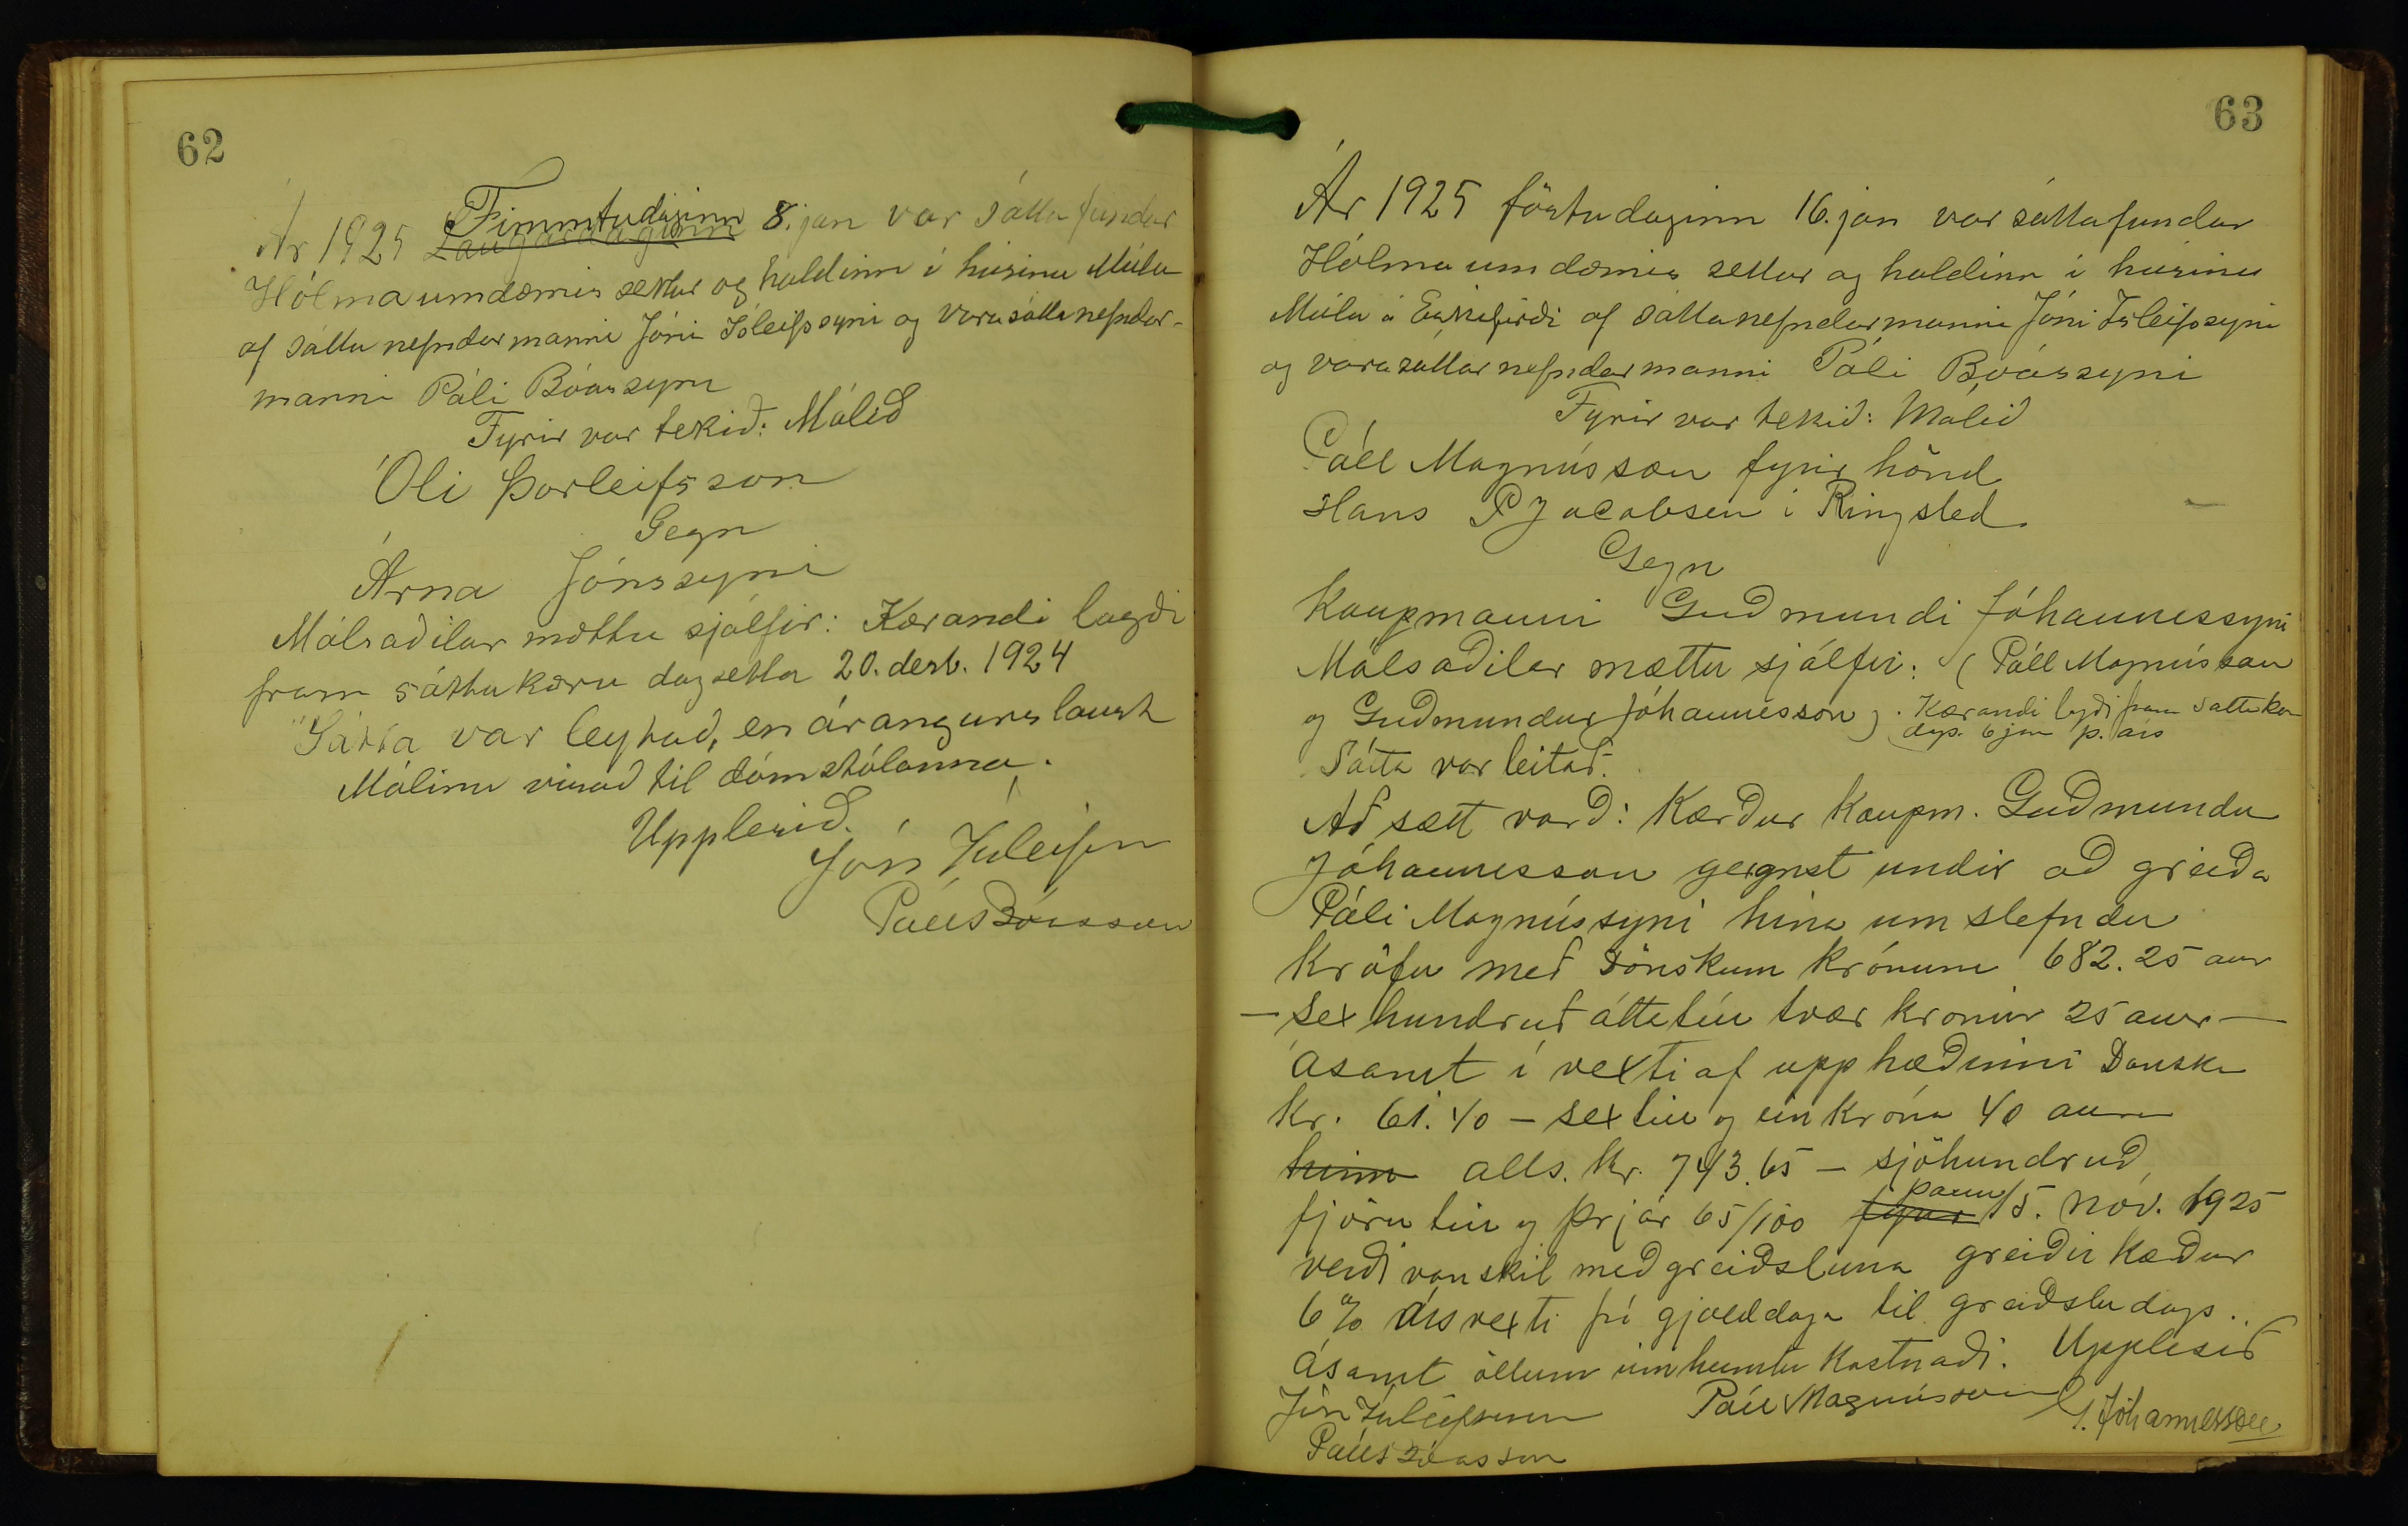 62
Ár 1925 Fimmtudaginn 8. jan var sáttafundur
Laugardaginn
Hólmaumdæmis settur og haldinn í húsinu Múla
af sáttanefndarmanni Jóni Ísleifssyni og varasáttanefndar-
manni Páli Bóassyni
Fyrir var tekið: Málið
Óli Þorleifsson
Gegn
Árna Jónssyni
Málsaðilar mættu sjálfir: Kærandi lagði
fram sáttakæru dagsetta 20. desb. 1924
Sátta var leytað, en árangurslaust
Málinu vísað til dómstólanna.
Upplesið.
Jón Ísleifsson
Páll Bóasson
63
Ár 1925 föstudaginn 16. jan var sáttafundur
Hólmaumdæmis settur og haldinn í húsinu
Múla á Eskifirði af sáttanefndarmanni Jóni Ísleifssyni
og varasáttarnefndarmanni Páli Bóassyni
Fyrir var tekið: Málið
Páll Magnússon fyrir hönd
Hans P Jacobsen í Ringsted
Gegn
Kaupmanni Guðmundi Jóhannessyni
Málsaðilar mættu sjálfir: (Páll Magnússon
og Guðmundur Jóhannesson). Kærandi lagði fram sáttakæru
dags. 6 jan þ. árs
Sátta var leitað.
Að sætt varð: Kærður Kaupm. Guðmundur
Jóhannesson gegnst undir að greiða
Páli Magnússyni hina umstefndu
Kröfu með dönskum krónum 682.25 aur
— sex hundruð áttatíu tvær krónur 25 aur —
ásamt í vexti af upphæðinni Danskar
kr. 61.40 — sextíu og ein króna 40 aura
hinn alls. kr. 743.65 — sjöhundruð
fjörutíu og þrjár 65/100 fyrir þann 15. nóv. 1925
verði vanskil með greiðsluna greiðir Kæður
6% ársvexti frá gjalddaga til greiðsludags.
ásamt öllum innheimtu Kostnaði. Upplesið
Jón Ísleifsson Páll Magnússon G. Jóhannesson
Páll Bóasson